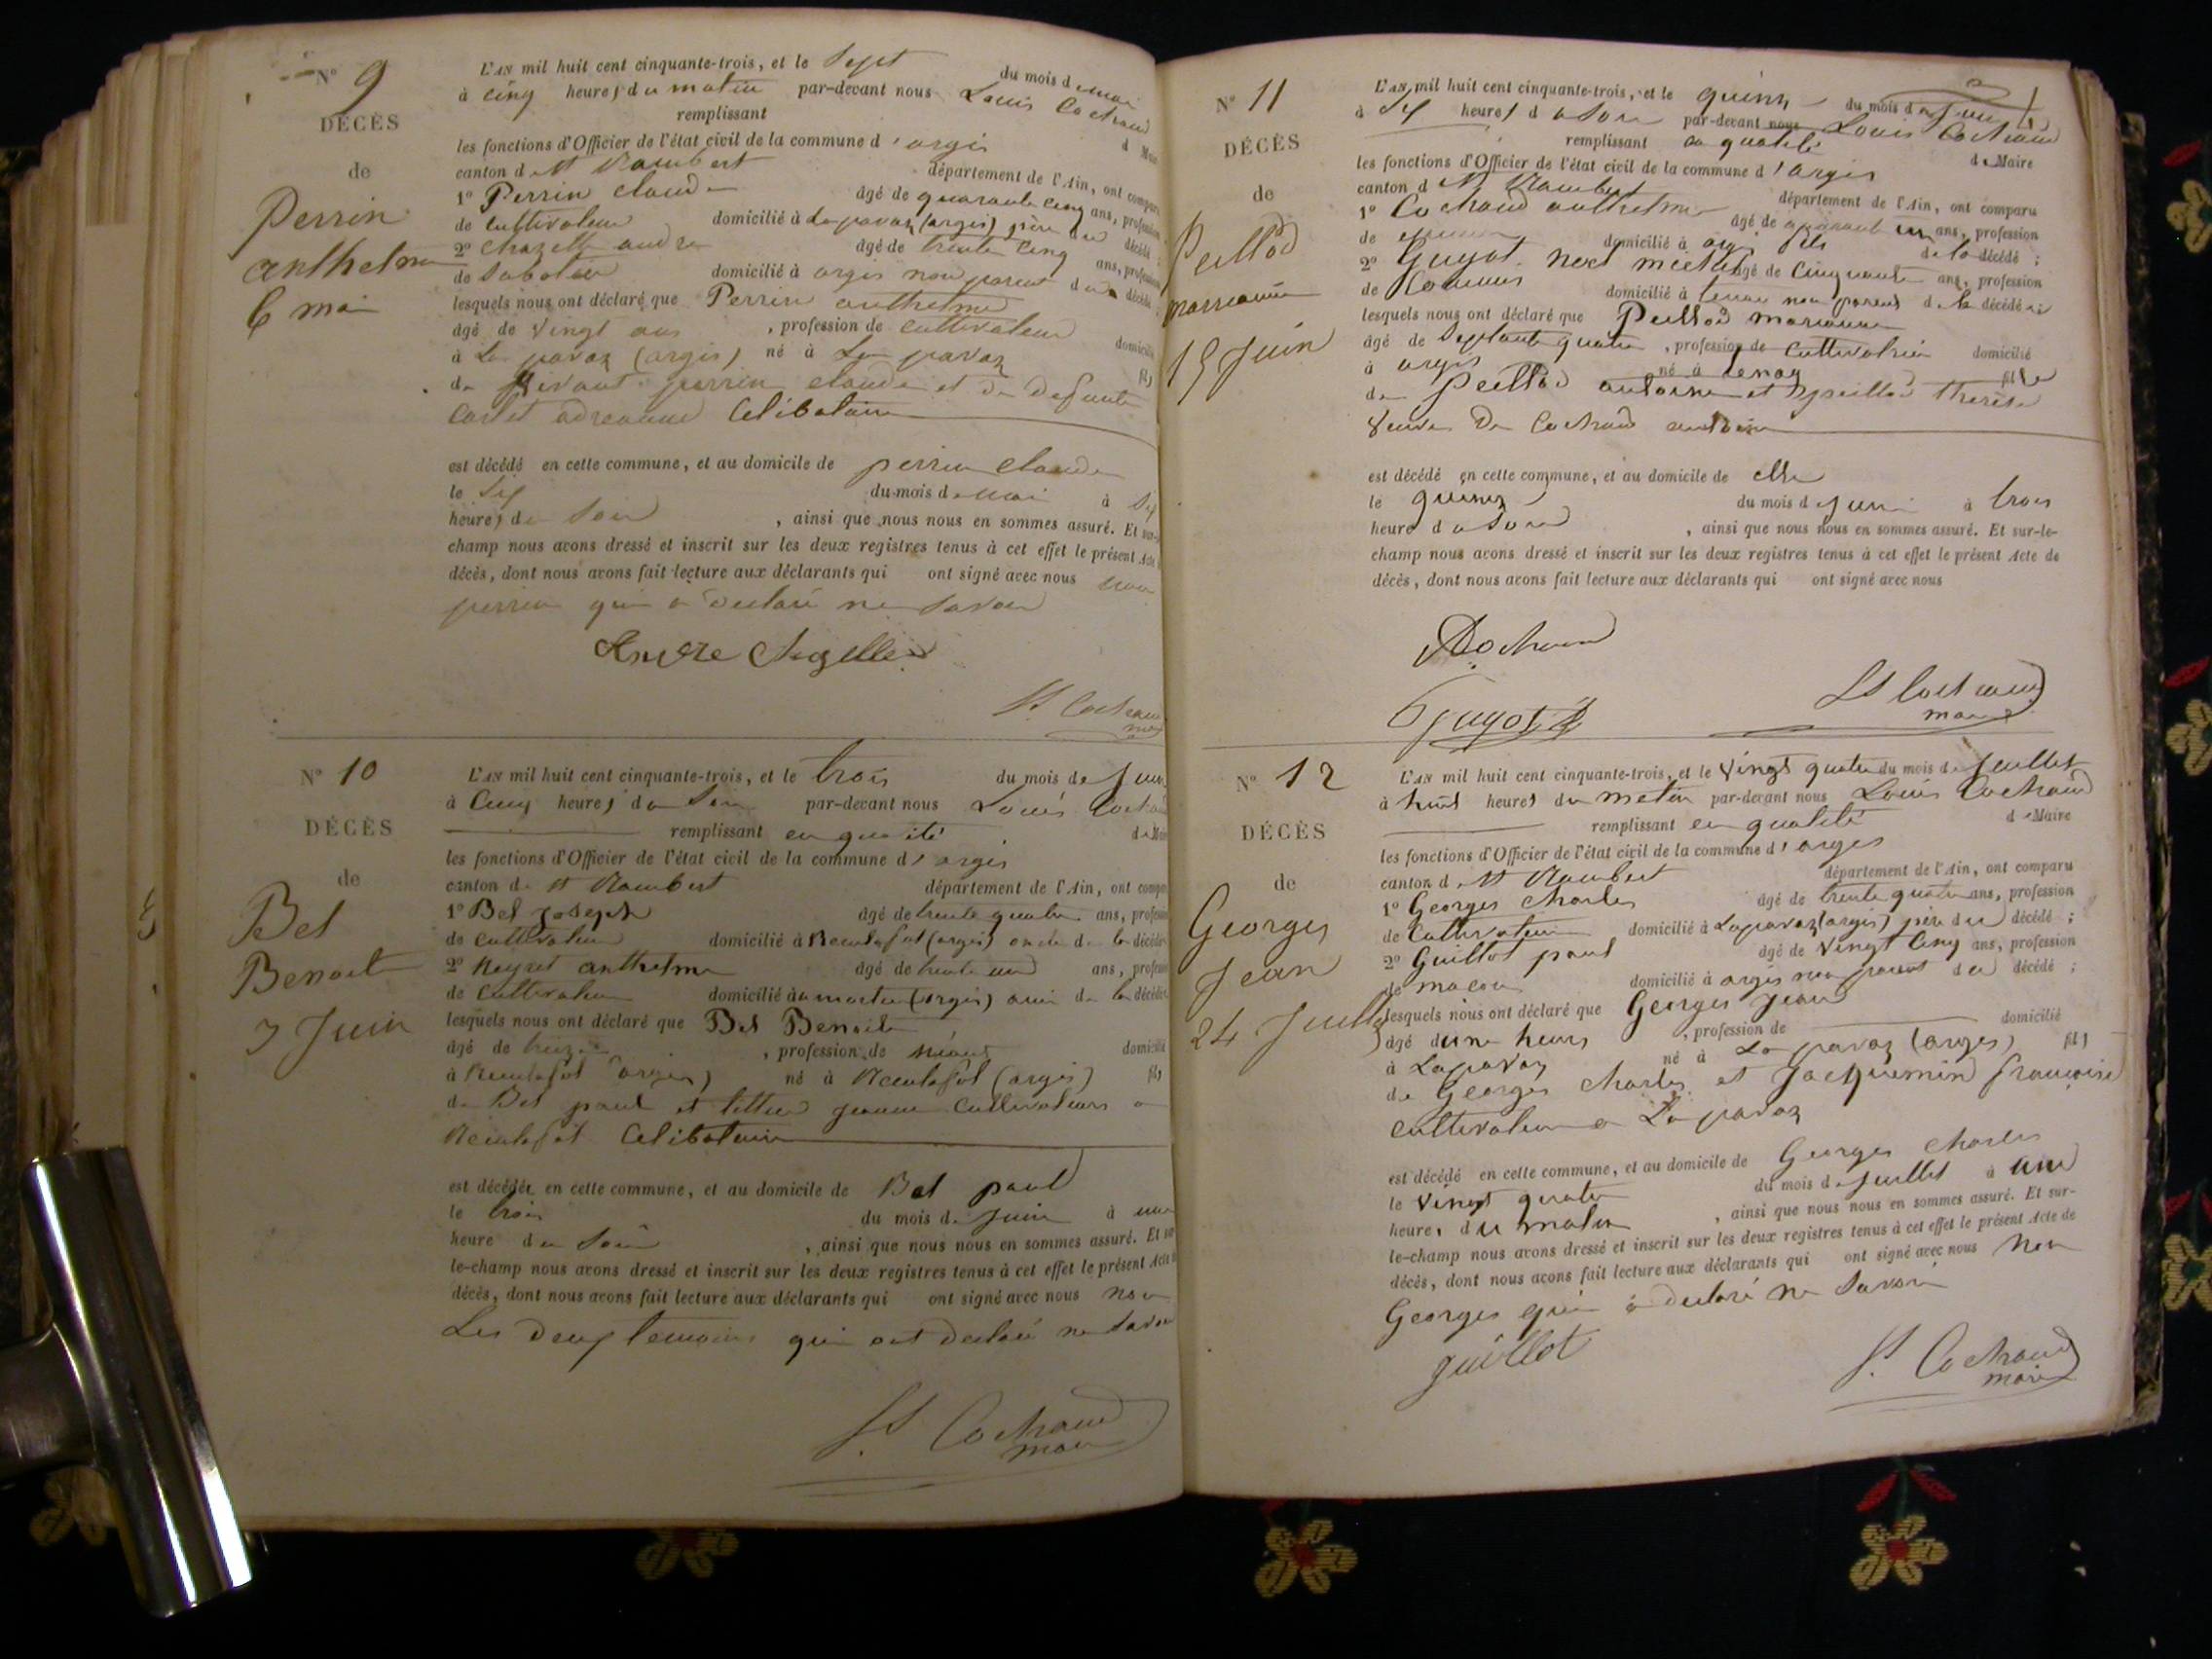 N° 9
DÉCÈS
de
Perrin
anthelme
6 mai
L'AN mil huit cent cinquante-trois, et le Sept du mois de mai
à cinq heures du matin par-devant nous Louis Cochaud
remplissant
les fonctions d'Officier de l'état civil de la commune d'argis
canton de St Rambert département de l'Ain, ont comparu
1° Perrin claude âgé de quarante cinq ans, profession
de cultivateur domicilié à La pavaz (argis) père du décédé
2° Chazelle andre âgé de trente cinq ans, profession
de Sabotier domicilié à argis non parent du décédé
lesquels nous ont déclaré que Perrin anthelme
âgé de vingt ans, profession de cultivateur domicilié
à La pavaz (argis) né à La pavaz fils
de vivant perrin claude et de defunte
adreanne Celibataire
est décédé en cette commune, et au domicile de perrin claude
le Six du mois de mai à Six
heures du Soir, ainsi que nous nous en sommes assuré. Et sur-le-
champ nous avons dressé et inscrit sur les deux registres tenus à cet effet le présent Acte
décès, dont nous avons fait lecture aux déclarants qui ont signé avec nous non
perrin qui a declaré ne Savoir
Cochaud
N° 10
DÉCÈS
de
Bel
Benoit
3 Juin
L'AN mil huit cent cinquante-trois, et le trois du mois de Juin
à Cinq heures du Soir par-devant nous Louis Cochaud
remplissant en qualité de Maire
les fonctions d'Officier de l'état civil de la commune d'argis
canton de St Rambert département de l'Ain, ont comparu
1° Bel Joseph âgé de trente quatre ans, profession
de cultivateur domicilié à Reculafol (argis) oncle de la décédée
2° Neyret anthelme âgé de trente un ans, profession
de Cultivateur domicilié au (argis) ami de la décédée
lesquels nous ont déclaré que Bel Benoite
âgé de treize, profession de néant domicilié
à Reculafol (argis) né à Reculafol (argis) fils
de Bel paul et Jeanne Cultivateurs a
Reculafol Celibataire
est décédée en cette commune, et au domicile de Bel paul
le trois du mois de Juin à une
heure du Soir, ainsi que nous nous en sommes assuré. Et sur
le-champ nous avons dressé et inscrit sur les deux registres tenus à cet effet le présent Acte
décès, dont nous avons fait lecture aux déclarants qui ont signé avec nous non
Les deux temoins qui ont declaré ne Savoir
Cochaud
maire
N° 11
DÉCÈS
de
Peillod
marianne
15 Juin
L'AN mil huit cent cinquante-trois, et le quinze du mois de Juin
à Six heures du Soir par-devant nous Louis Cochaud
remplissant en qualité de Maire
les fonctions d'Officier de l'état civil de la commune d'argis
canton de St Rambert département de l'Ain, ont comparu
1° Cochaud anthelme âgé de quarante un ans, profession
de domicilié à argis fils de la décédé;
2° Guyot noel michel âgé de Cinquante ans, profession
de Commis domicilié à tenay non parent de la décédée
lesquels nous ont déclaré que Peillod marianne
âgé de Septante quatre, profession de cultivatrice domicilié
à argis né à tenay fille
de Peillod antoine et peillod therèse
veuve De Cochaud
est décédé en cette commune, et au domicile de elle
le quinze du mois de Juin à trois
heure du Soir, ainsi que nous nous en sommes assuré. Et sur-le-
champ nous avons dressé et inscrit sur les deux registres tenus à cet effet le présent Acte de
décès, dont nous avons fait lecture aux déclarants qui ont signé avec nous
Cochaud
Guyot
Cochaud
maire
N° 12
DÉCÈS
de
Georges
Jean
24 Juillet
L'AN mil huit cent cinquante-trois, et le vingt quatre du mois de Juillet
à huit heures du matin par-devant nous Louis Cochaud
remplissant en qualité de Maire
les fonctions d'Officier de l'état civil de la commune d'argis
canton de St Rambert département de l'Ain, ont comparu
1° Georges Charles âgé de trente quatre ans, profession
de Cultivateur domicilié à Lapavaz (argis) père du décédé;
2° Guillot paul âgé de vingt Cinq ans, profession
de macon domicilié à argis non parent du décédé;
lesquels nous ont déclaré que Georges Jean
âgé dune heure, profession de domicilié
à Lapavaz né à La pavaz (argis) fils
de Georges Charles et Jacquemin françoise
cultivateur a La pavaz
est décédé en cette commune, et au domicile de Georges Charles
le vingt quatre du mois de Juillet à une
heure, du matin, ainsi que nous nous en sommes assuré. Et sur-
le-champ nous avons dressé et inscrit sur les deux registres tenus à cet effet le présent Acte de
décès, dont nous avons fait lecture aux déclarants qui ont signé avec nous non
Georges qui a declaré ne Savoir
guillot
Cochaud
maire